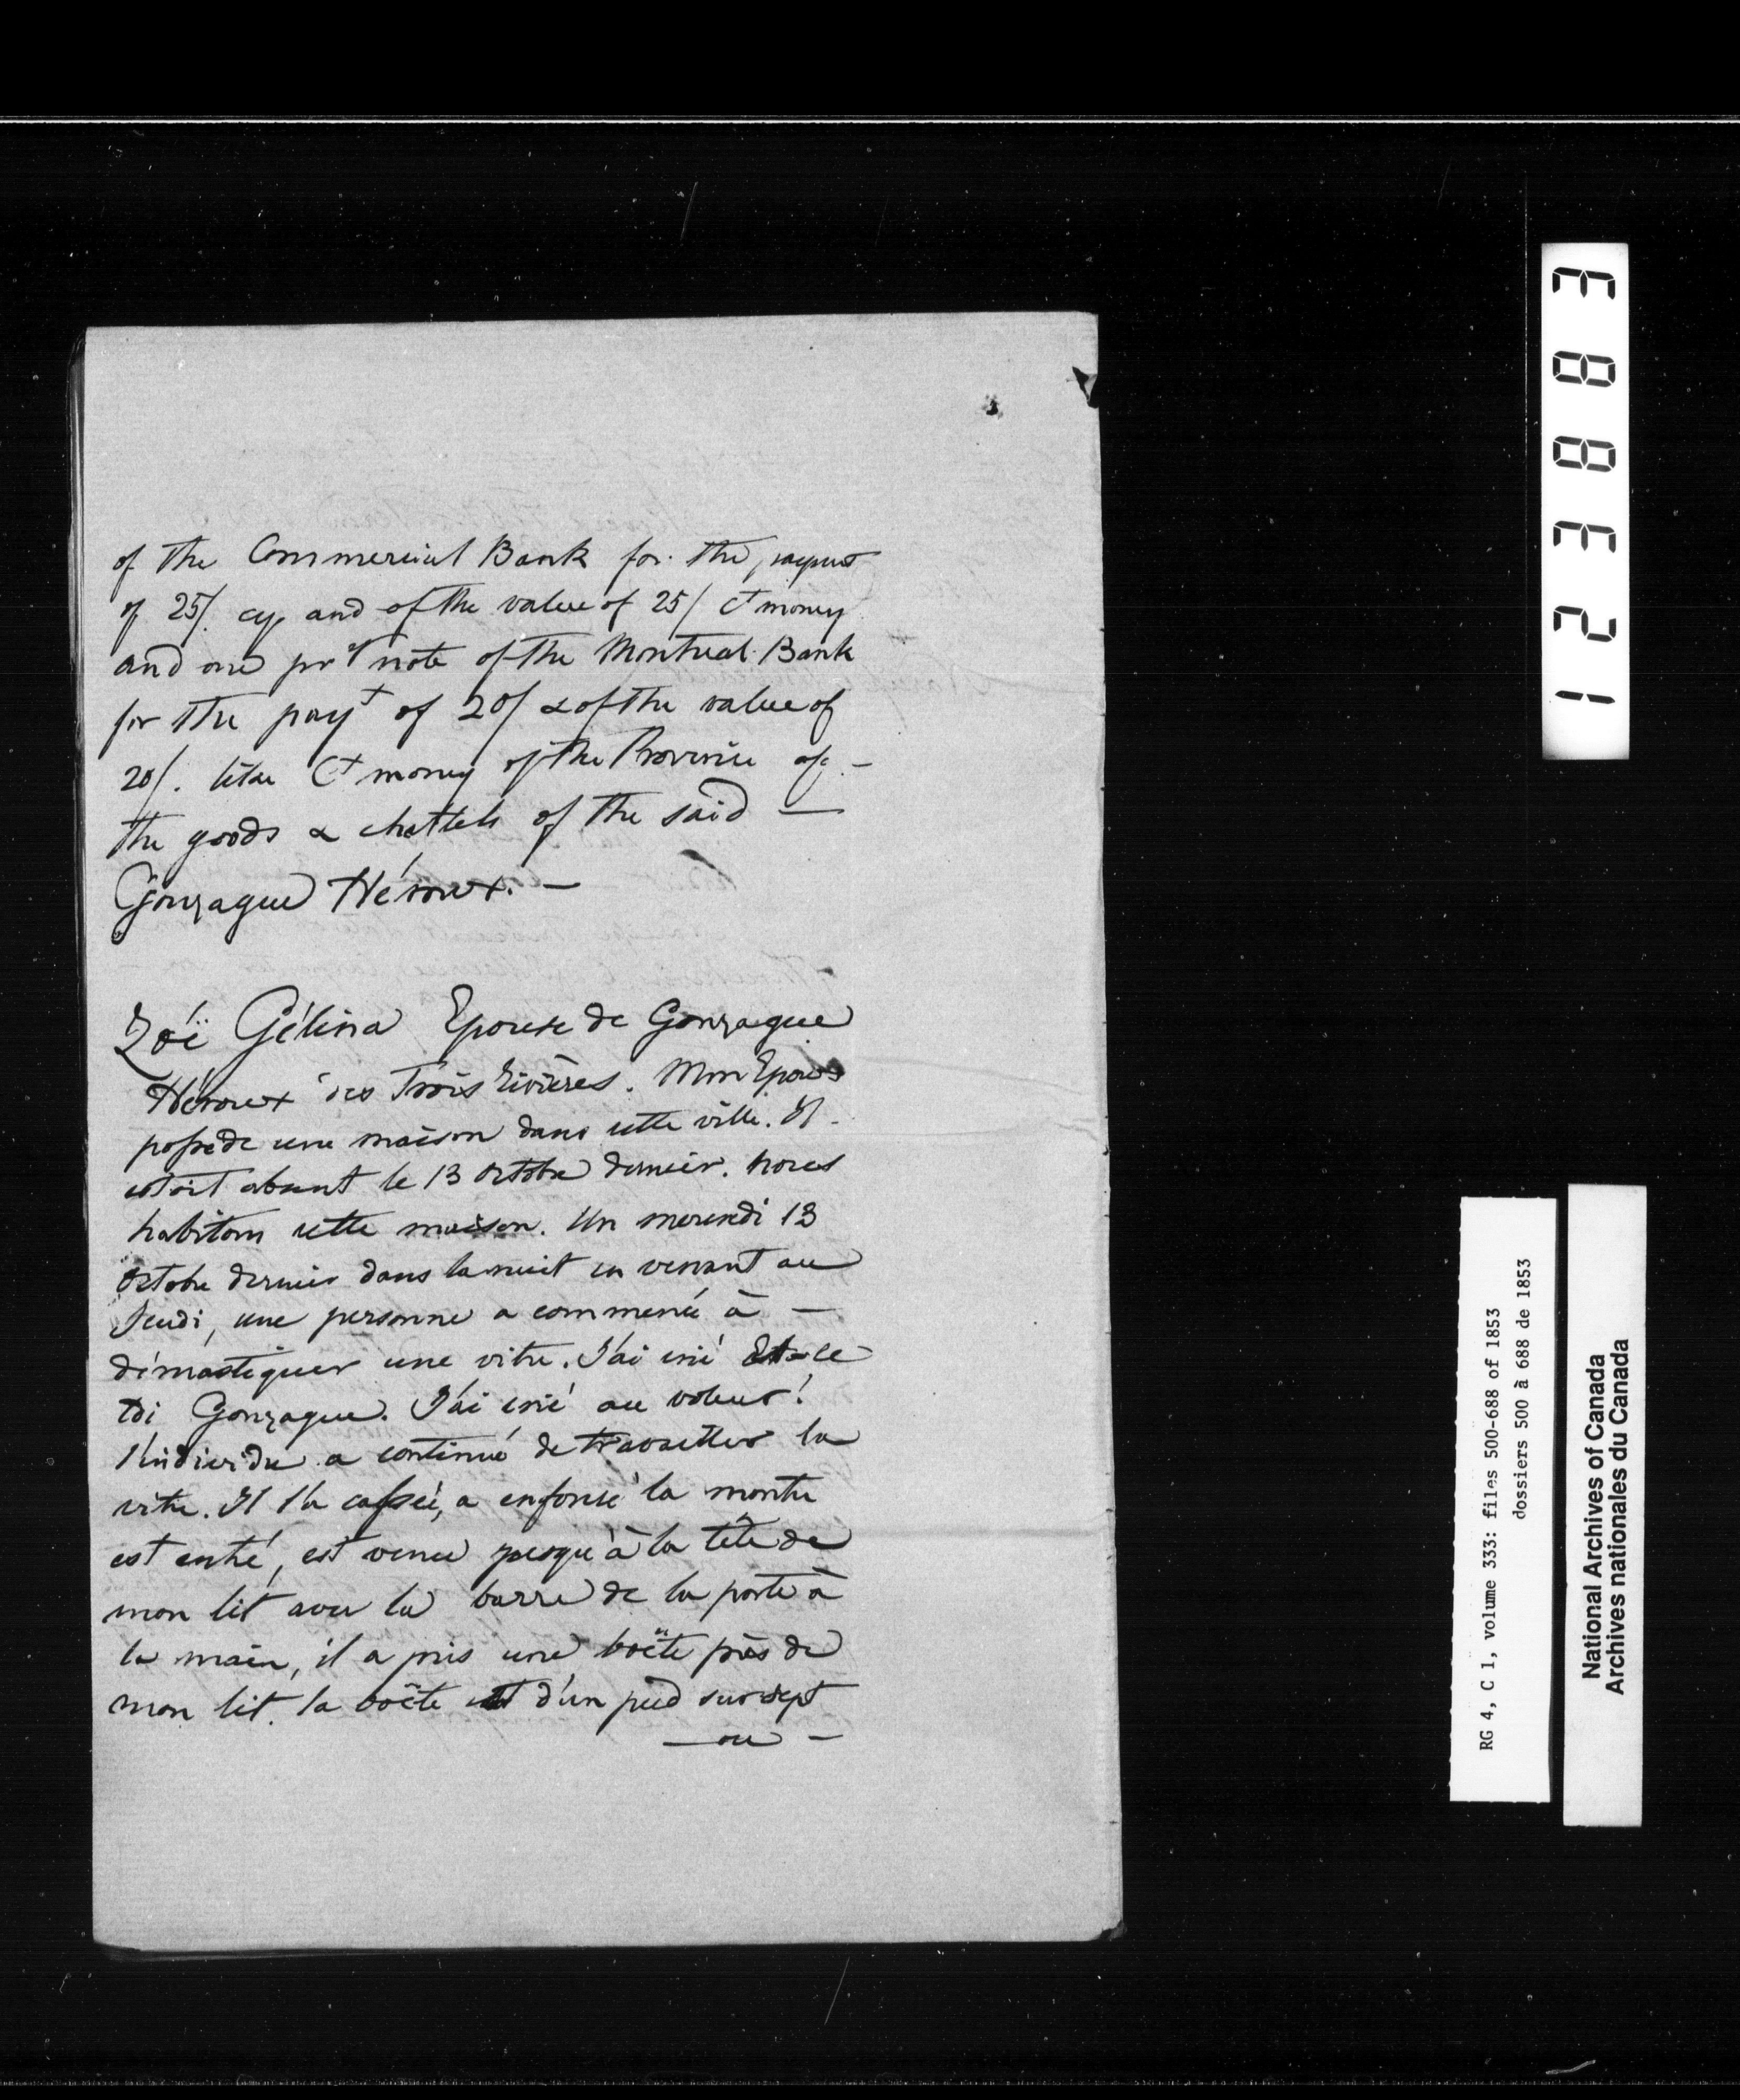 of the Commercial Bank for the paymt
of 25/. cy. and of the value of 25/ Ct money
and one pry note of the Montreal Bank
for the payt of 20/ & of the value of
20/. like Ct money of the Province of —
the goods & chattels of the said —
Gonzague Héroux. —
Zoë Gélina Epouse de Gonzague
Héroux des Trois Rivières. Mon Epoux
possede une maison dans cette ville. Il
etoit absent le 13 Octobre dernier. Nous
habitons cette maison. Un mercredi 13
Octobre dernier dans la nuit en venant au
Jeudi, une personne a commencé à —
démastiquer une vitre. J'ai crié Est-ce
toi Gonzague. J'ai crié au voleur!
l'individu a continué de travailler la
vitre. Il l'a cassée, a enfoncé la montre
est entré, est venu jusqu'à la tête de
mon lit avec la barre de la porte à
la main, il a pris une boëte près de
mon lit. la boëte est d'un pied sur sept
— ou —
1 2 3 8 8 3
RG 4, C 1, volume 333: files 500-688 of 1853
dossiers 500 à 688 de 1853
National Archives of Canada
Archives nationales du Canada